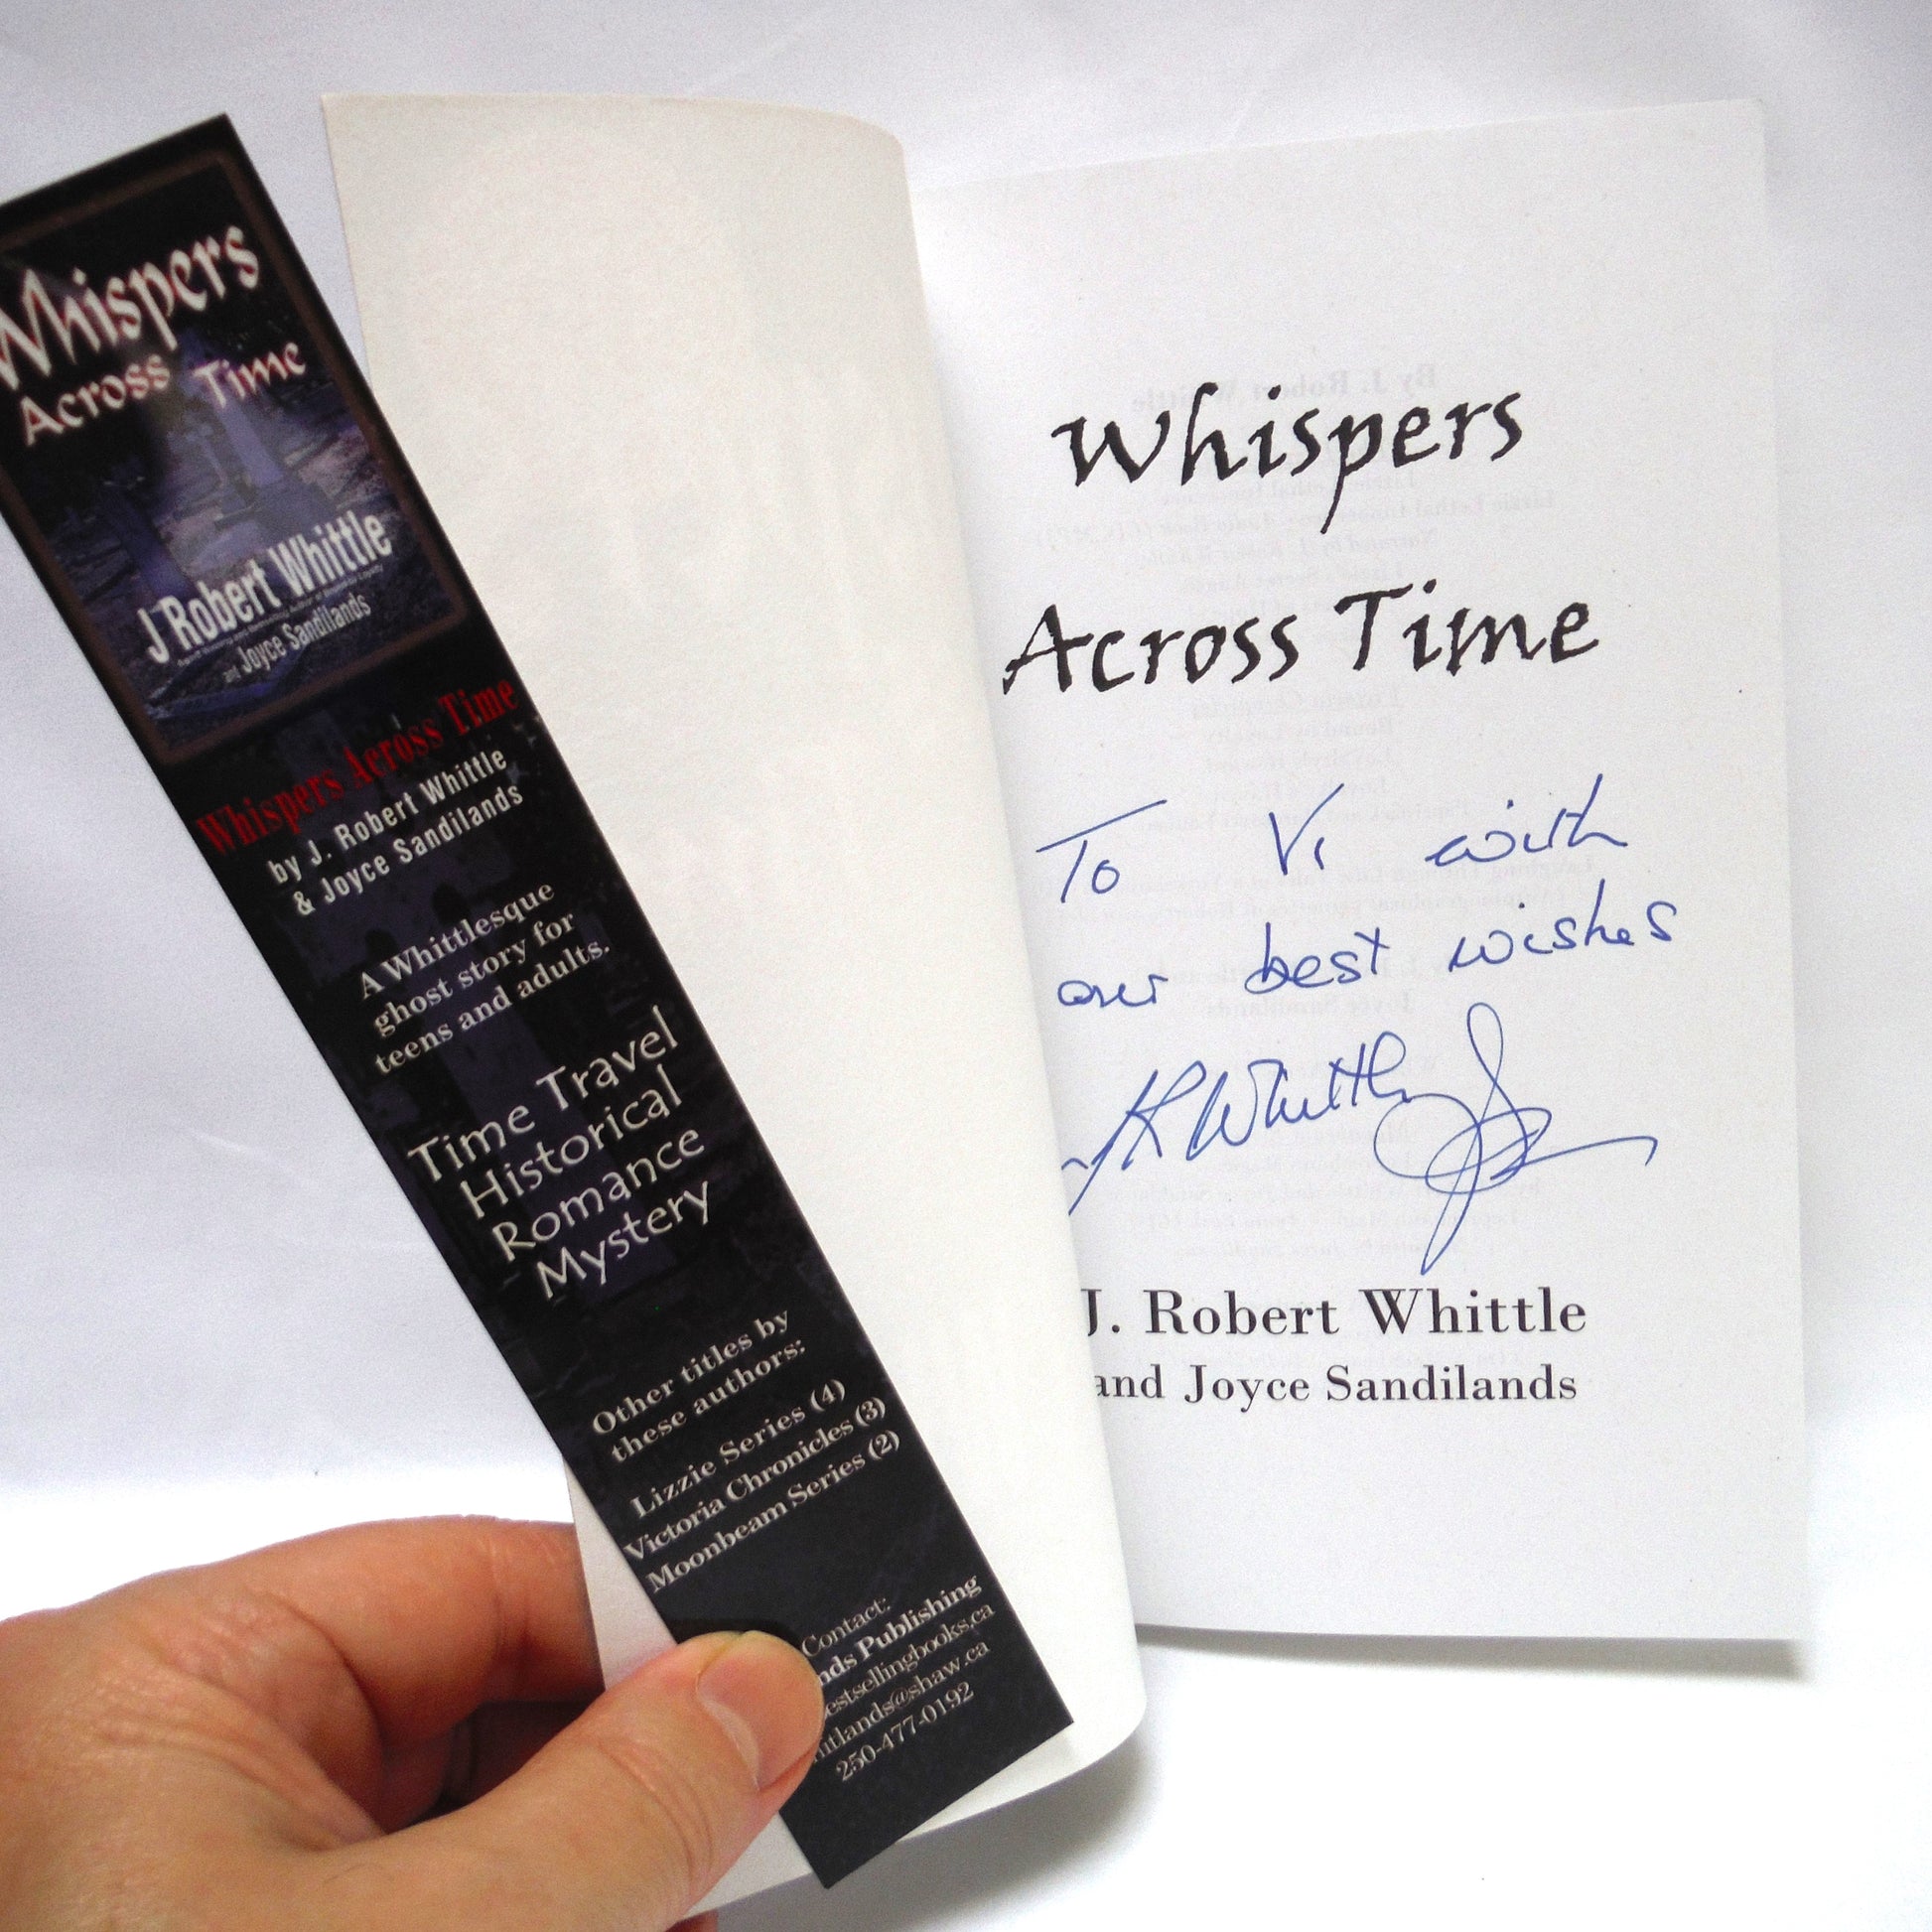 Whispers
Across Time
J Robert Whittle
and Joyce Sandilands
Whispers Across Time
by J. Robert Whittle
& Joyce Sandilands
A Whittlesque
ghost story for
teens and adults.
Time Travel
Historical
Romance
Mystery
Other titles by
these authors:
Lizzie Series (4)
Victoria Chronicles (3)
Moonbeam Series (2)
Contact:
Publishing
250-477-0192
Whispers
Across Time
To Vi with
our best wishes
J. Robert Whittle
and Joyce Sandilands